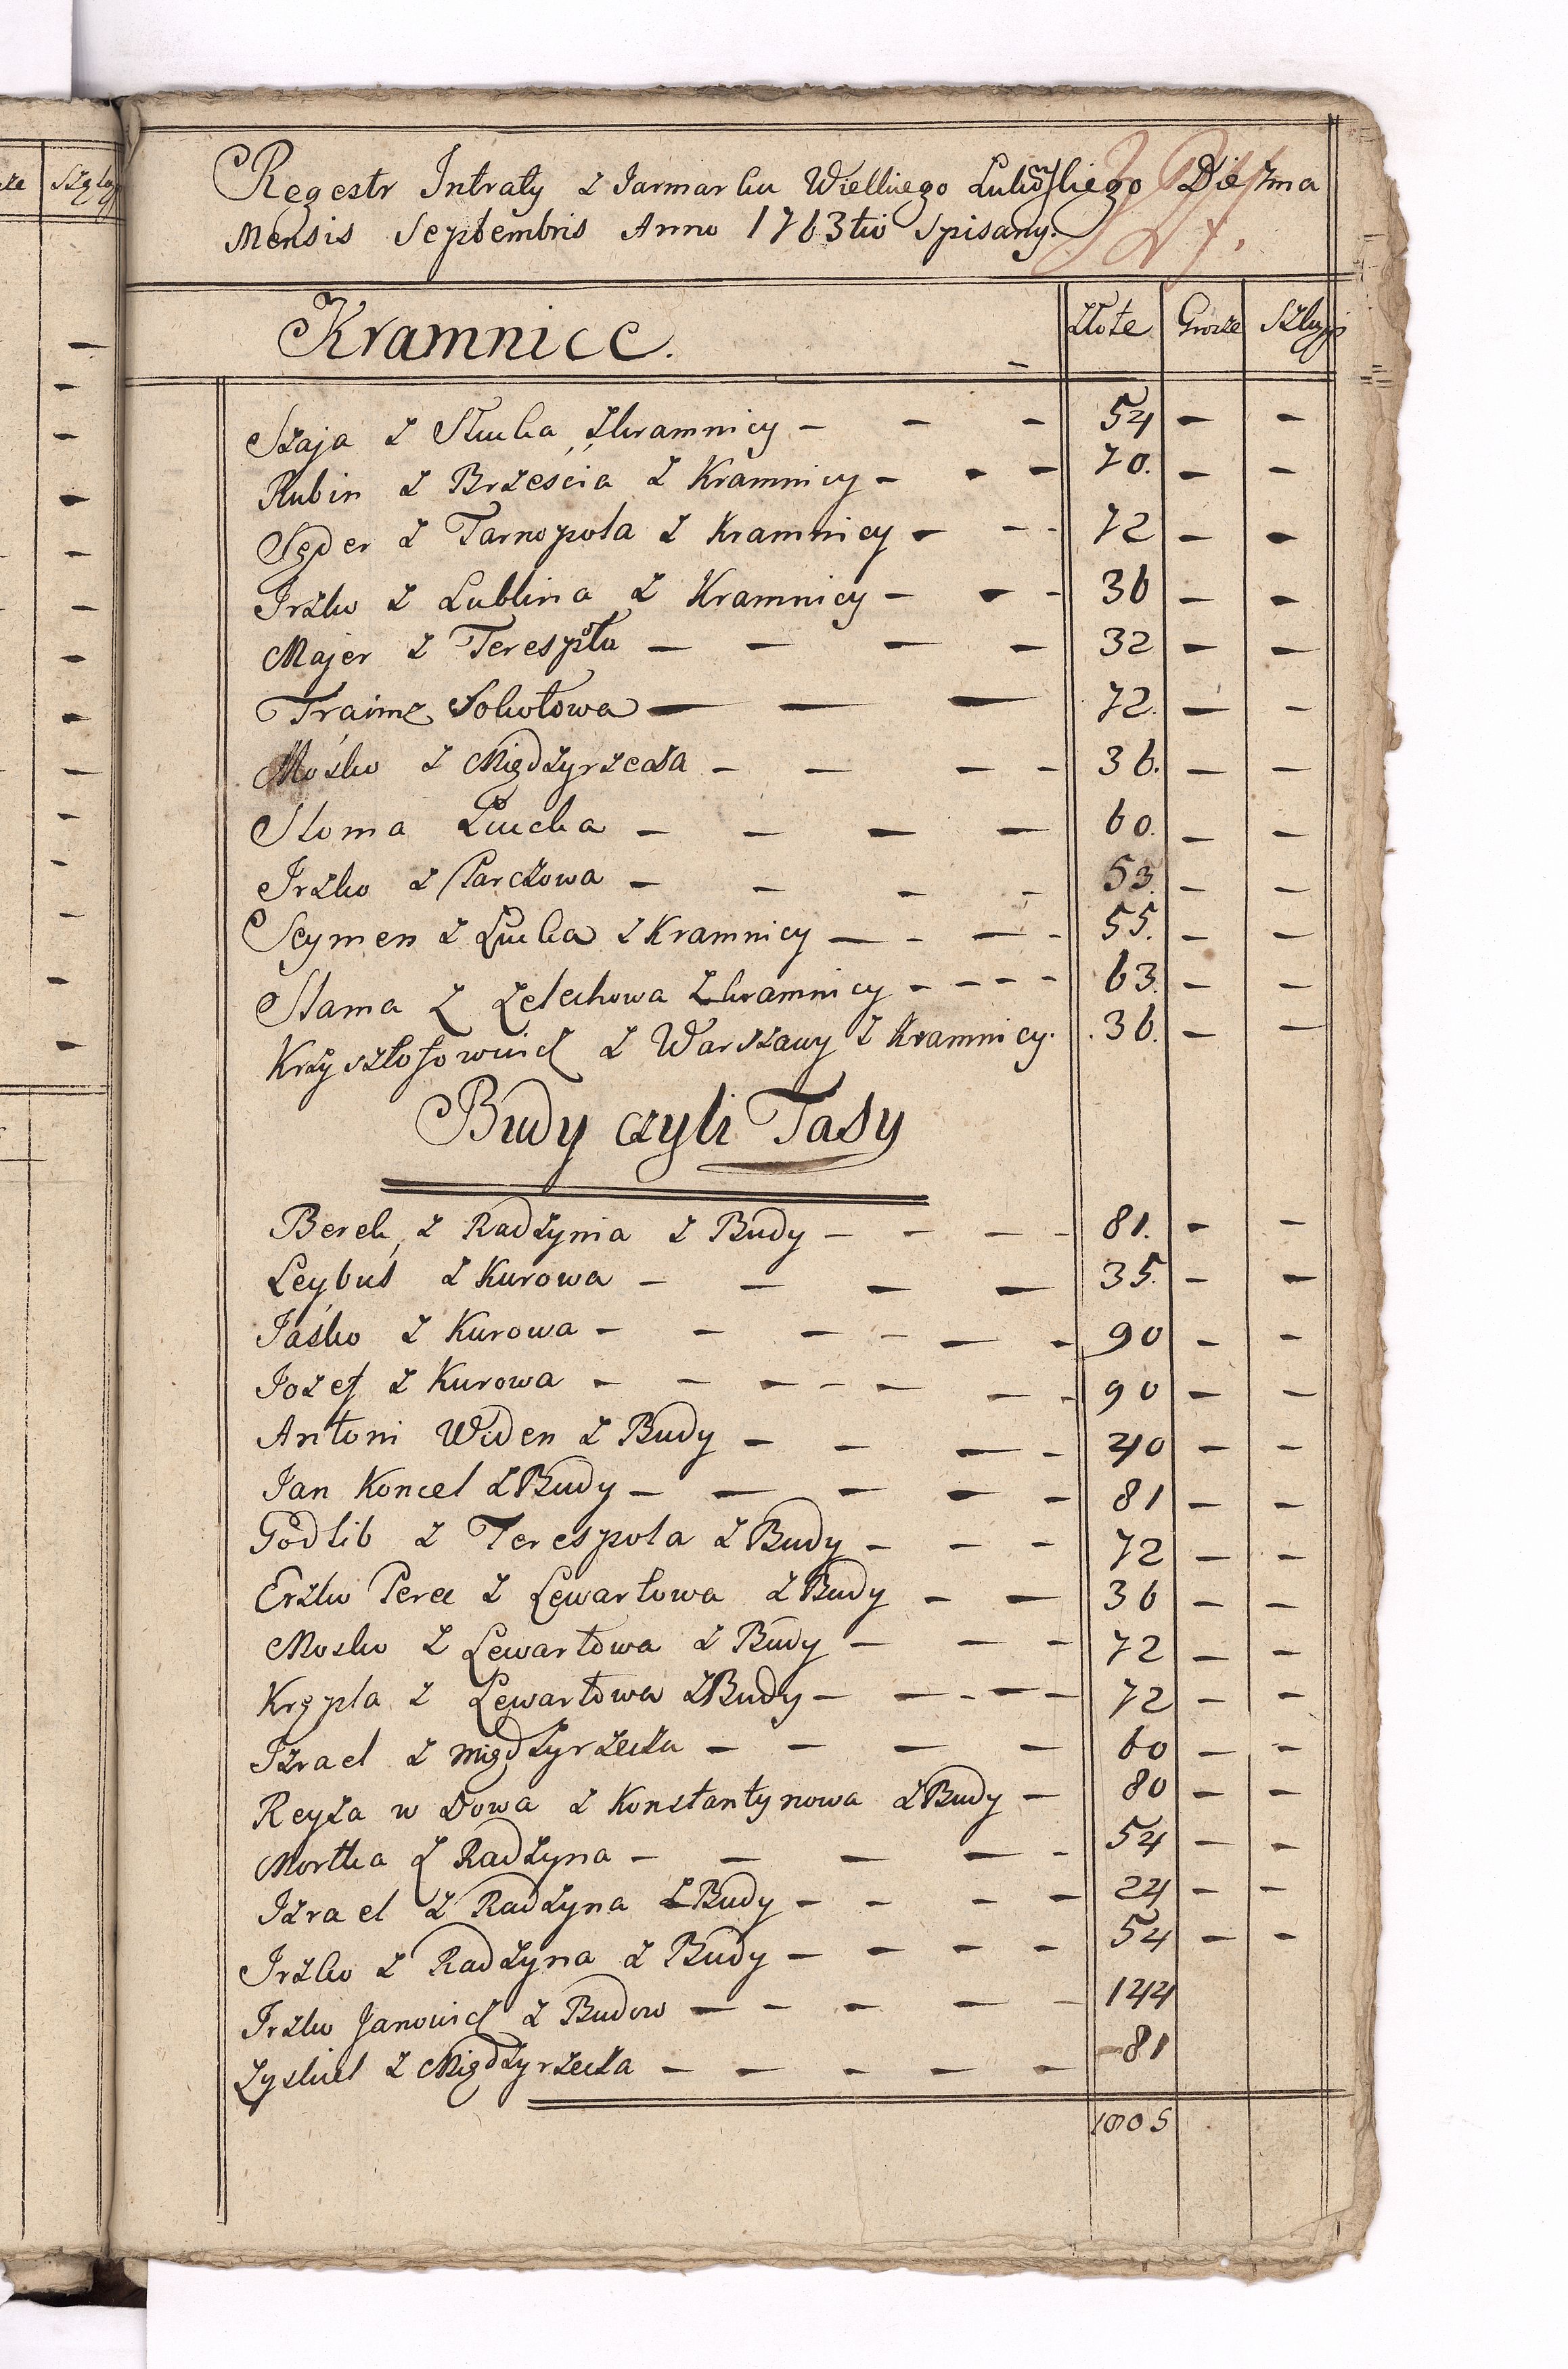 ze Szelągi
Regestr Intraty z Iarmarku Wielkiego Łukowskiego Die 7ma
Mensis Septembris Anno 1763tio Spisany.
Kramnice. Złote Grosze Szelągi
Szaja z Słucka z kramnicy - - - 54 - -
Rubin z Brześcia z Kramnicy - - - 70. - -
Sęder z Tarnopola z Kramnicy - - - 72 - -
Irzko z Lublina z Kramnicy - - - 36 - -
Majer z Terespola - - - - 32 - -
Fraim z Sokołowa - - - 72. - -
Mośko z Międzyrzecza - - - - 36. - -
Sloma Łucka - - - - 60. - -
Irzko z Parczowa - - - - 53. - -
Szymen z Łucka z Kramnicy - - - - 55. - -
Slama z Żelechowa z kramnicy - - - - 63. - -
Krzysztofowicz z Warszawy z Kramnicy. 36. - -
Budy czyli Jasy
Berek z Radzynia z Budy - - - - 81. - -
Leybuś z Kurowa - - - - 35. - -
Iaśko z Kurowa - - - - - - 90 - -
Iozef z Kurowa - - - - - - - 90 - -
Antoni Widen z Budy - - - - 40 - -
Ian Koncel z Budy - - - - - 81 - -
Godlib z Terespola z Budy - - - 72 - -
Erzko Perec z Lewartowa z Budy - - 36 - -
Mosko z Lewartowa z Budy - - - 72 - -
Krępla z Lewartowa z Budy - - - - - 72 - -
Izrael z międzyrzecza - - - - 60 - -
Reyza wdowa z Konstantynowa z Budy - 80 - -
Mortka z Radzyna - - - - - 54 - -
Izrael z Radzyna z Budy - - - - 24 - -
Irzko z Radzyna z Budy - - - - 54 - -
Irzko Janowicz z Budow - - - - - 144
Zyskiel z Międzyrzecza - - - - - 81
1805